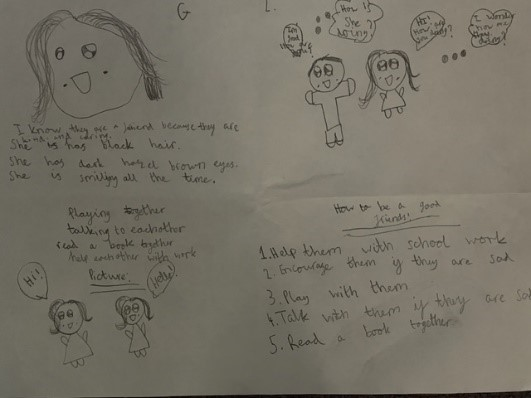 G
I know they are a friend because they are
kind and caring.
She has black hair.
She has dark hazel brown eyes.
She is smiling all the time.
L.
How is
She
doing?
Hi!
How are
you?
I wonder
how are
they
doing?
Playing together
talking to eachother
read a book together
help eachother with work
Picture:
Hi!
Hello!
How to be a good
friend!
1. Help them with school work
2. Encourage them if they are sad
3. Play with them
4. Talk with them if they are sad
5. Read a book together